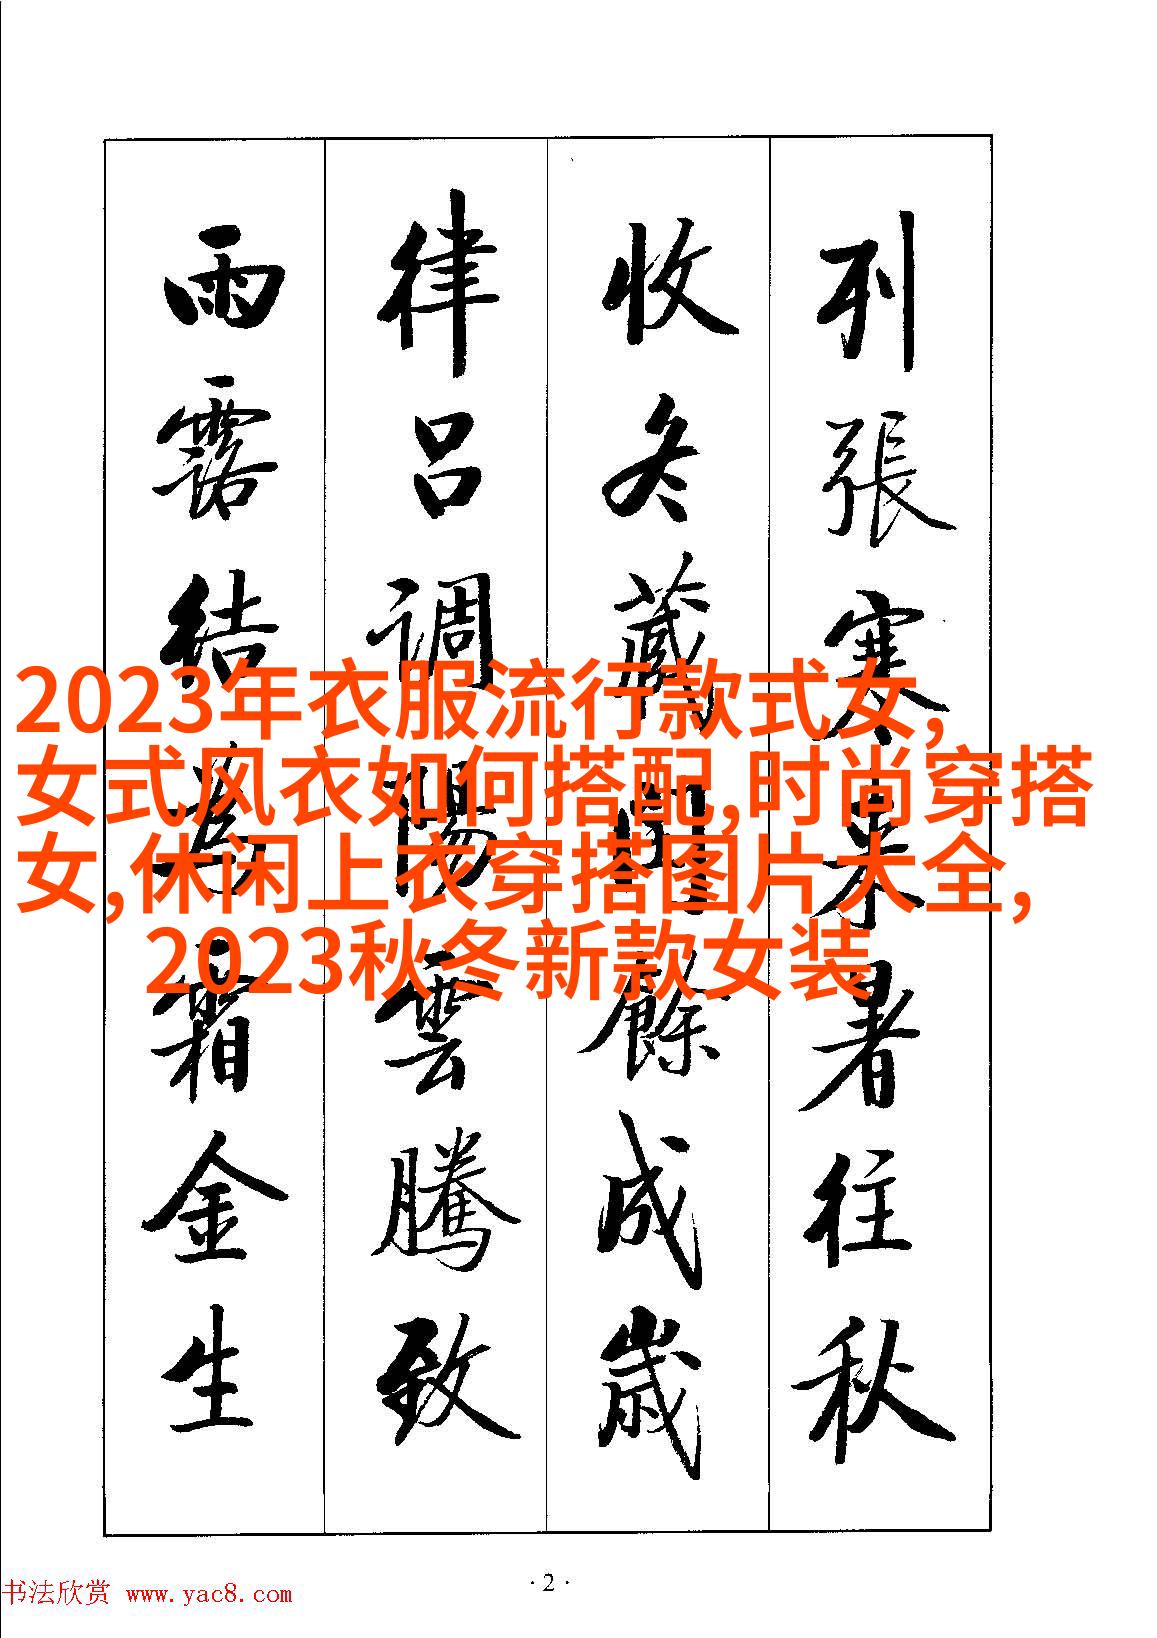 列張寒來暑往秋
收冬藏閏餘成歲
律呂調陽雲騰致
雨露結為霜金生
2023年衣服流行款式女,
女式风衣如何搭配,时尚穿搭
女,休闲上衣穿搭图片大全,
2023秋冬新款女装
·2·
书法欣赏 www.yac8.com